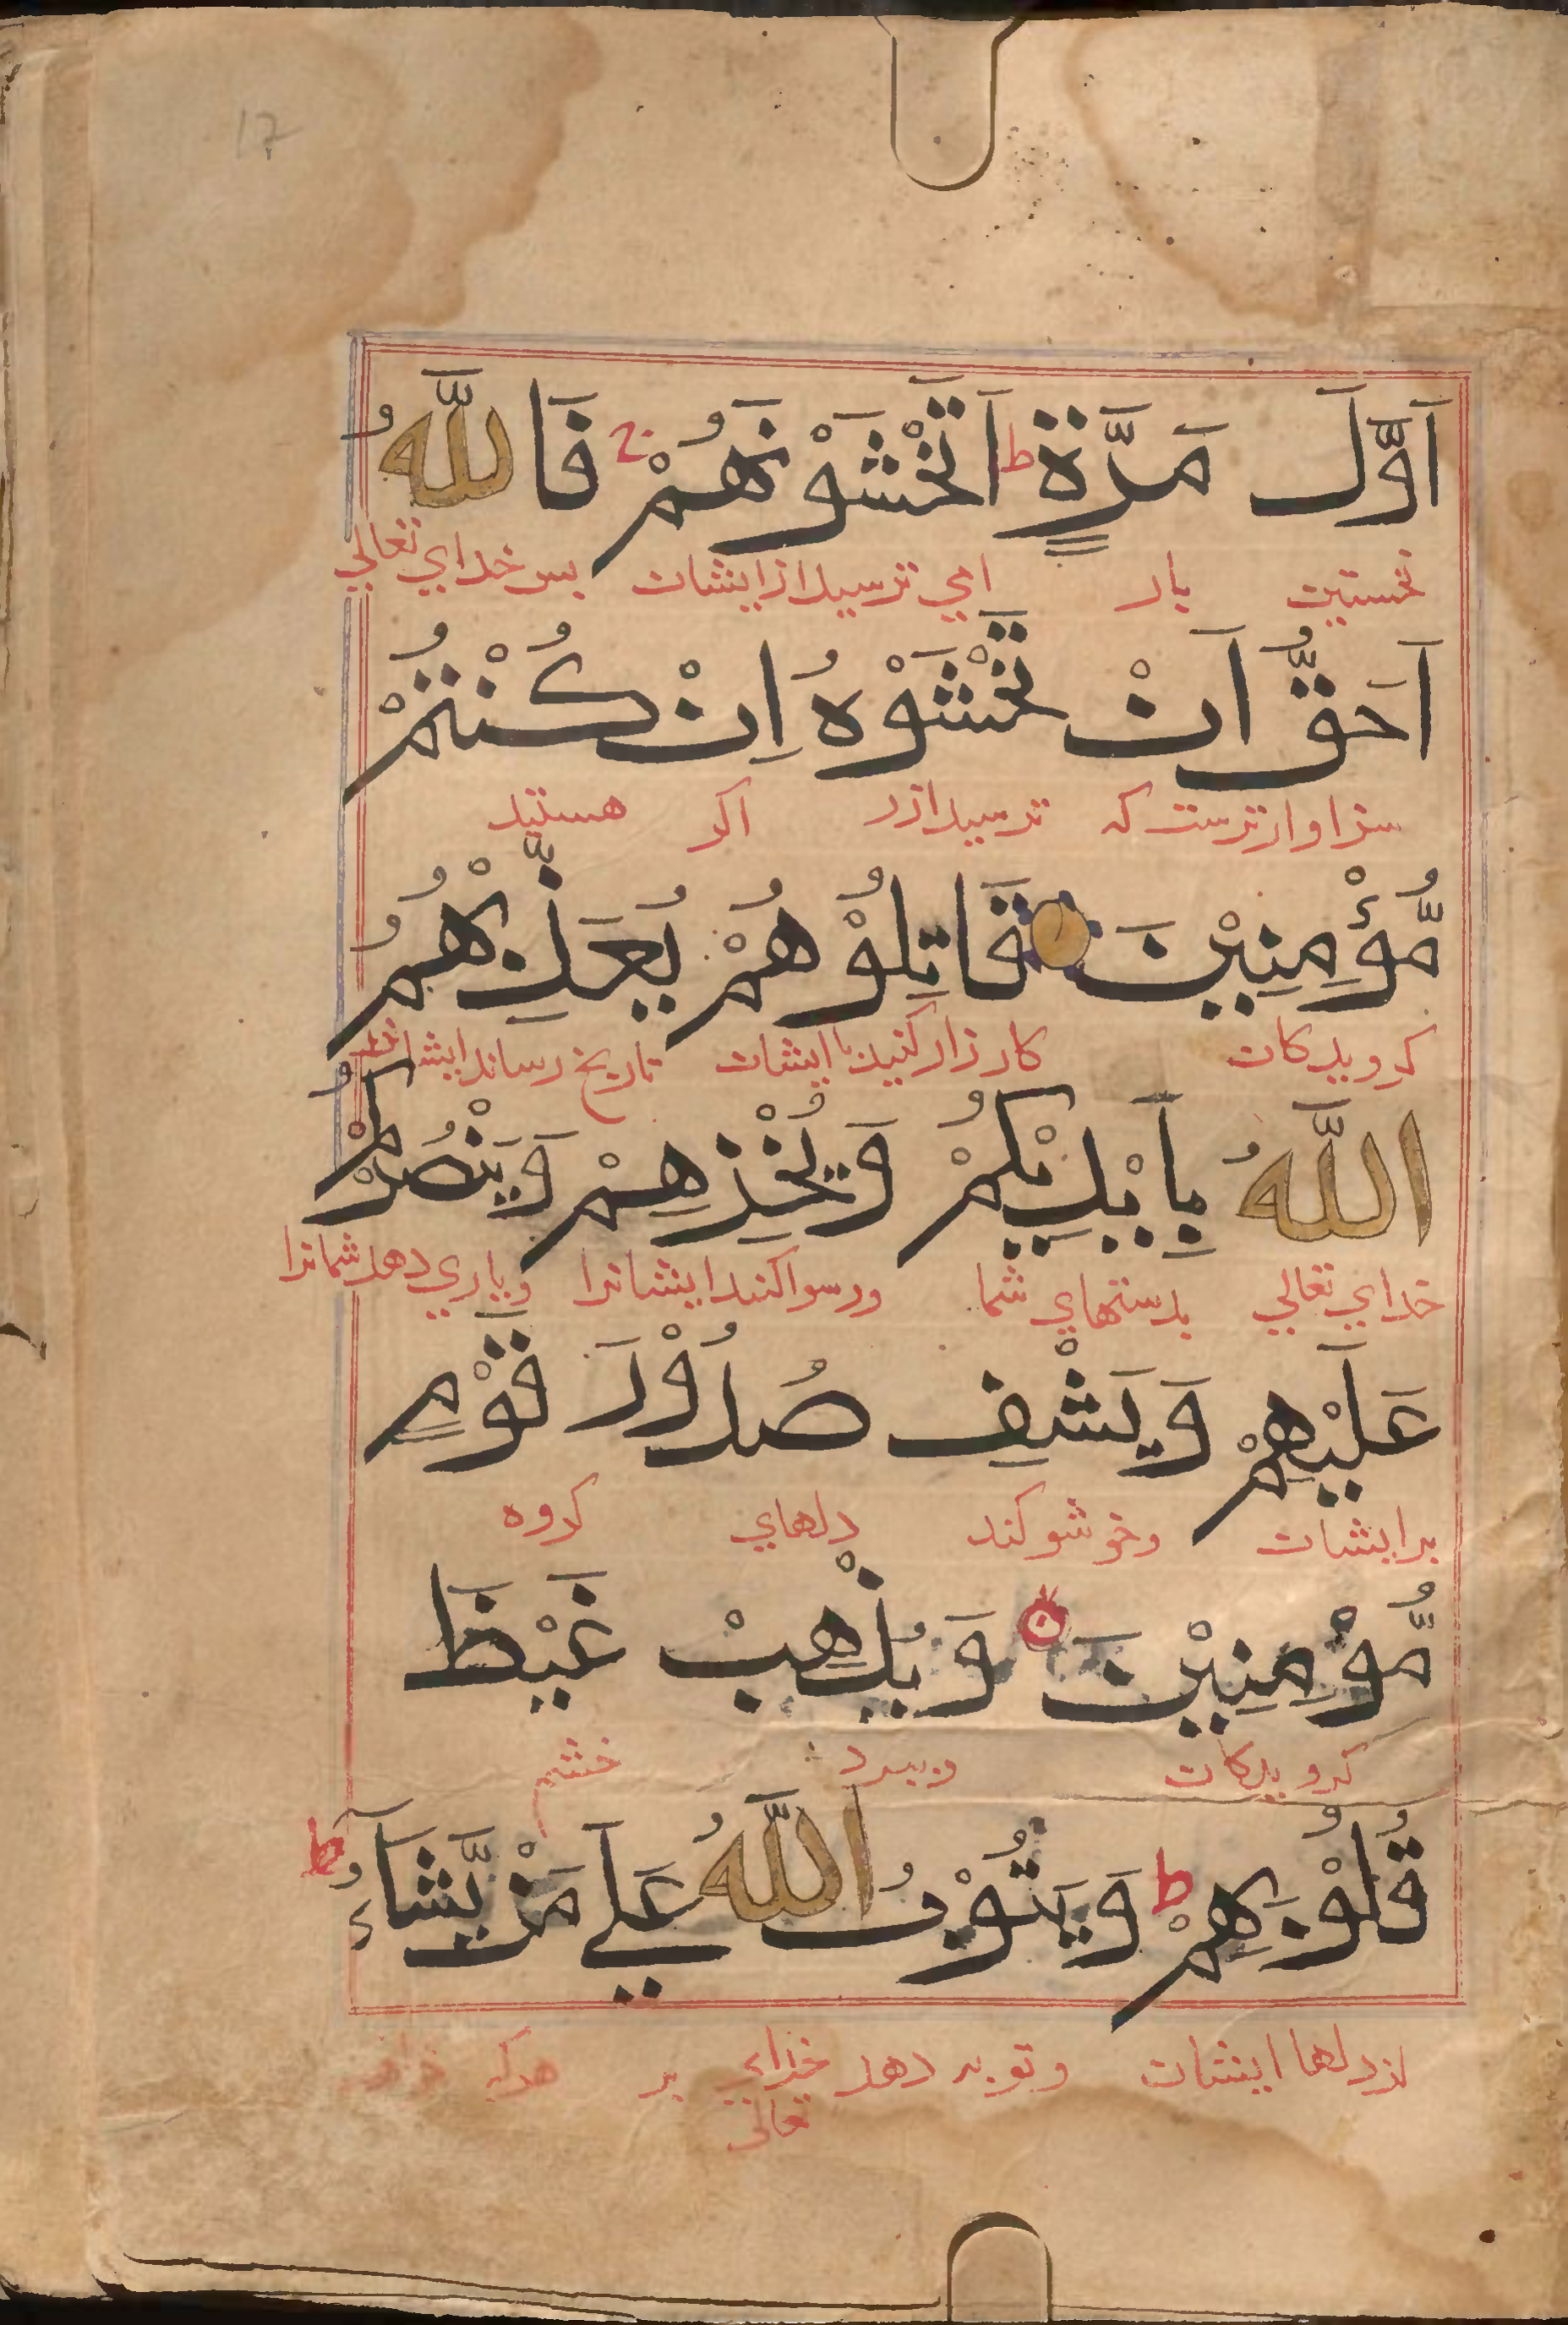 17
اَوَّلَ مَرَّةٍ ط اَتَخْشَوْنَهُمْ ج فَاللّٰهُ
نخستین بار امی ترسید از ایشان پس خدای تعالی
اَحَقُّ اَنْ تَخْشَوْهُ اِنْ كُنْتُمْ
سزاوارترست که ترسید ازر اکر هستید
مُّؤْمِنِيْنَ قَاتِلُوْهُمْ يُعَذِّبْهُمُ
کرویدکان کارزار کنید با ایشان تاریخ رساند ایشانرا
اللّٰهُ بِاَيْدِيْكُمْ وَيُخْزِهِمْ وَيَنْصُرْكُمْ
خدای تعالی بدستهای شما ورسوا کند ایشانرا ویاری دهد شمانرا
عَلَيْهِمْ وَيَشْفِ صُدُوْرَ قَوْمٍ
بر ایشان وخوشو کند دلهای کروه
مُّؤْمِنِيْنَ ن وَيُذْهِبْ غَيْظَ
کرویدکان وببرد خشم
قُلُوْبِهِمْ ط وَيَتُوْبُ اللّٰهُ عَلٰي مَنْ يَّشَآءُ ط
از دلها ایشان وتوبه دهد خدای بر هرکه
تعالی